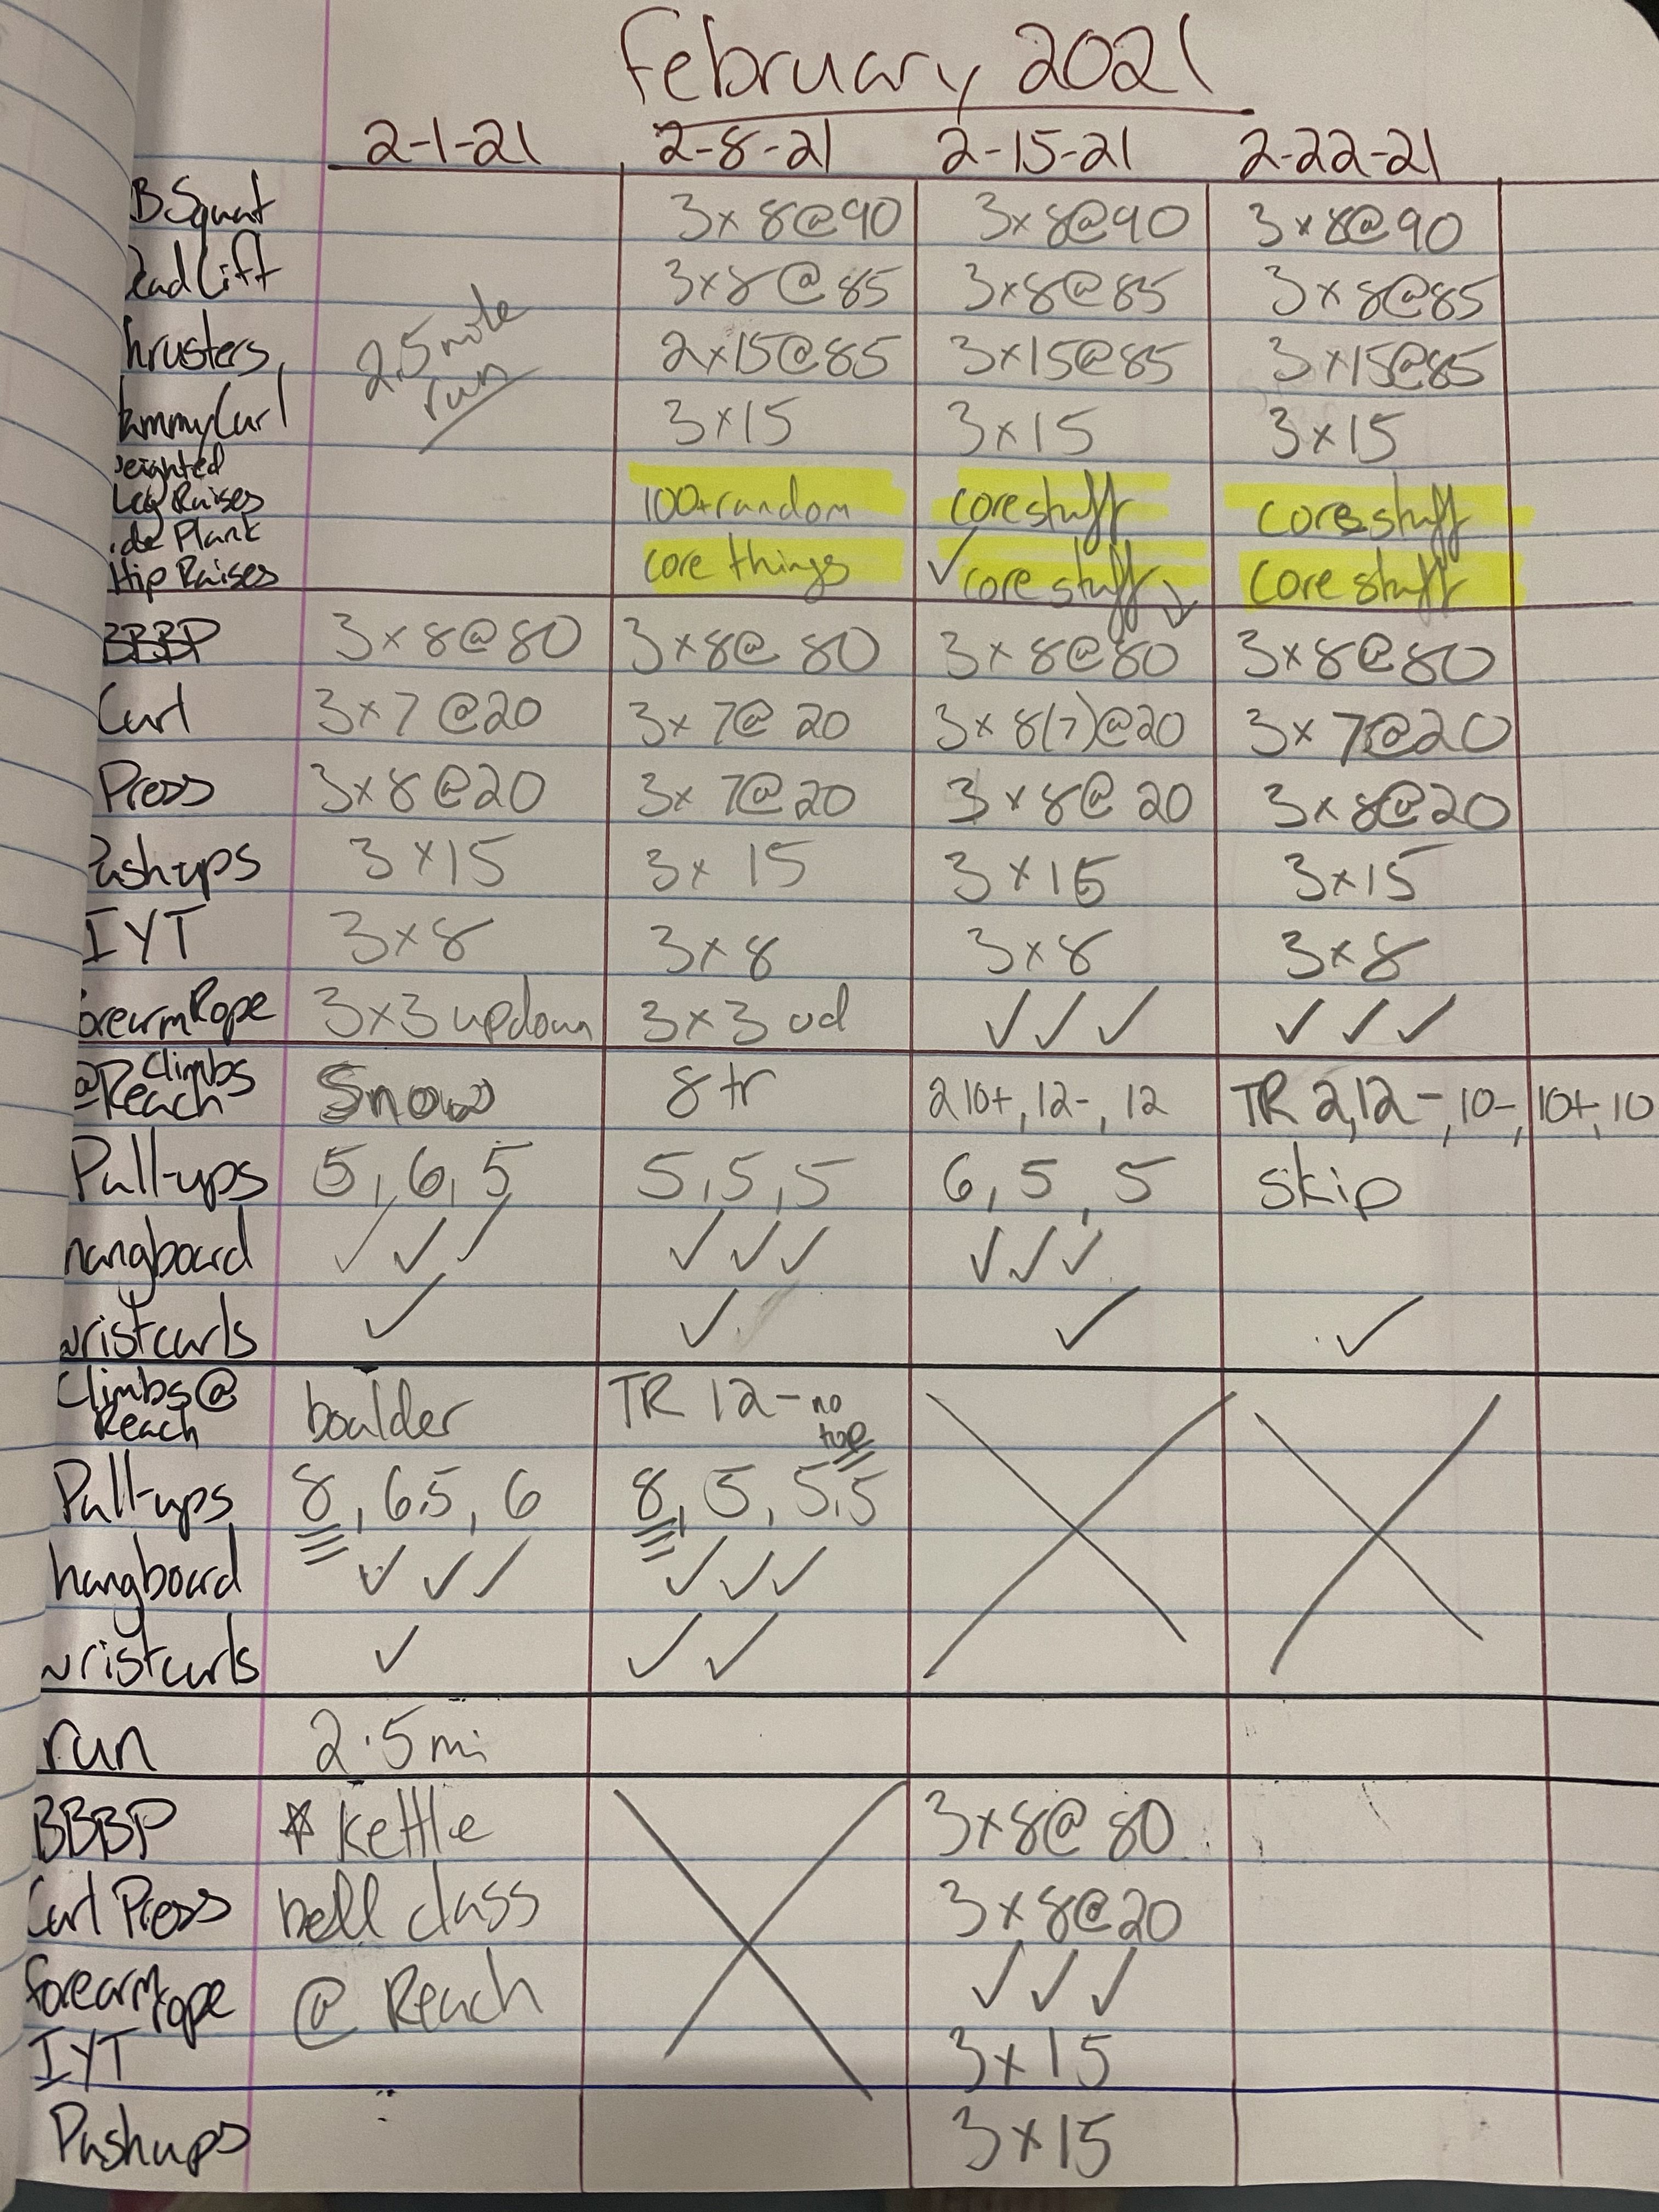 February 2021
2-1-21 2-8-21 2-15-21 2-22-21
BSquat 3x8@90 3x8@90 3x8@90
eadlift 3x8@85 3x8@85 3x8@85
hrusters, 2.5 mile 2x15@85 3x15@85 3x15@85
run
ammyCurl 3x15 3x15 3x15
eighted
Leg Raises 100+random corestuff corestuff
ide Plank
Hip Raises core things ✓ core stuff ↓ core stuff
BBBP 3x8@80 3x8@80 3x8@80 3x8@80
Curl 3x7@20 3x7@20 3x8(7)@20 3x7@20
Press 3x8@20 3x7@20 3x8@20 3x8@20
Pushups 3x15 3x15 3x15 3x15
IYT 3x8 3x8 3x8 3x8
orearmRope 3x3 updown 3x3 ud ✓✓✓ ✓✓✓
Climbs
@Reach Snow 8tr 2 10+, 12-, 12 TR 2,12-, 10-, 10+, 10
Pull-ups 5, 6, 5 5, 5, 5 6, 5, 5 skip
hangboard ✓✓✓ ✓✓✓ ✓✓✓
wristcurls ✓ ✓ ✓ ✓
Climbs@
Reach boulder TR 12- no
top
Pull-ups 8, 6.5, 6 8, 5, 5.5
hangboard ✓✓✓ ✓✓✓
wristcurls ✓ ✓✓
run 2.5mi
BBBP ☆ kettle 3x8@80
Curl Press bell class 3x8@20
forearm
rope @ Reach ✓✓✓
IYT 3x15
Pushups 3x15